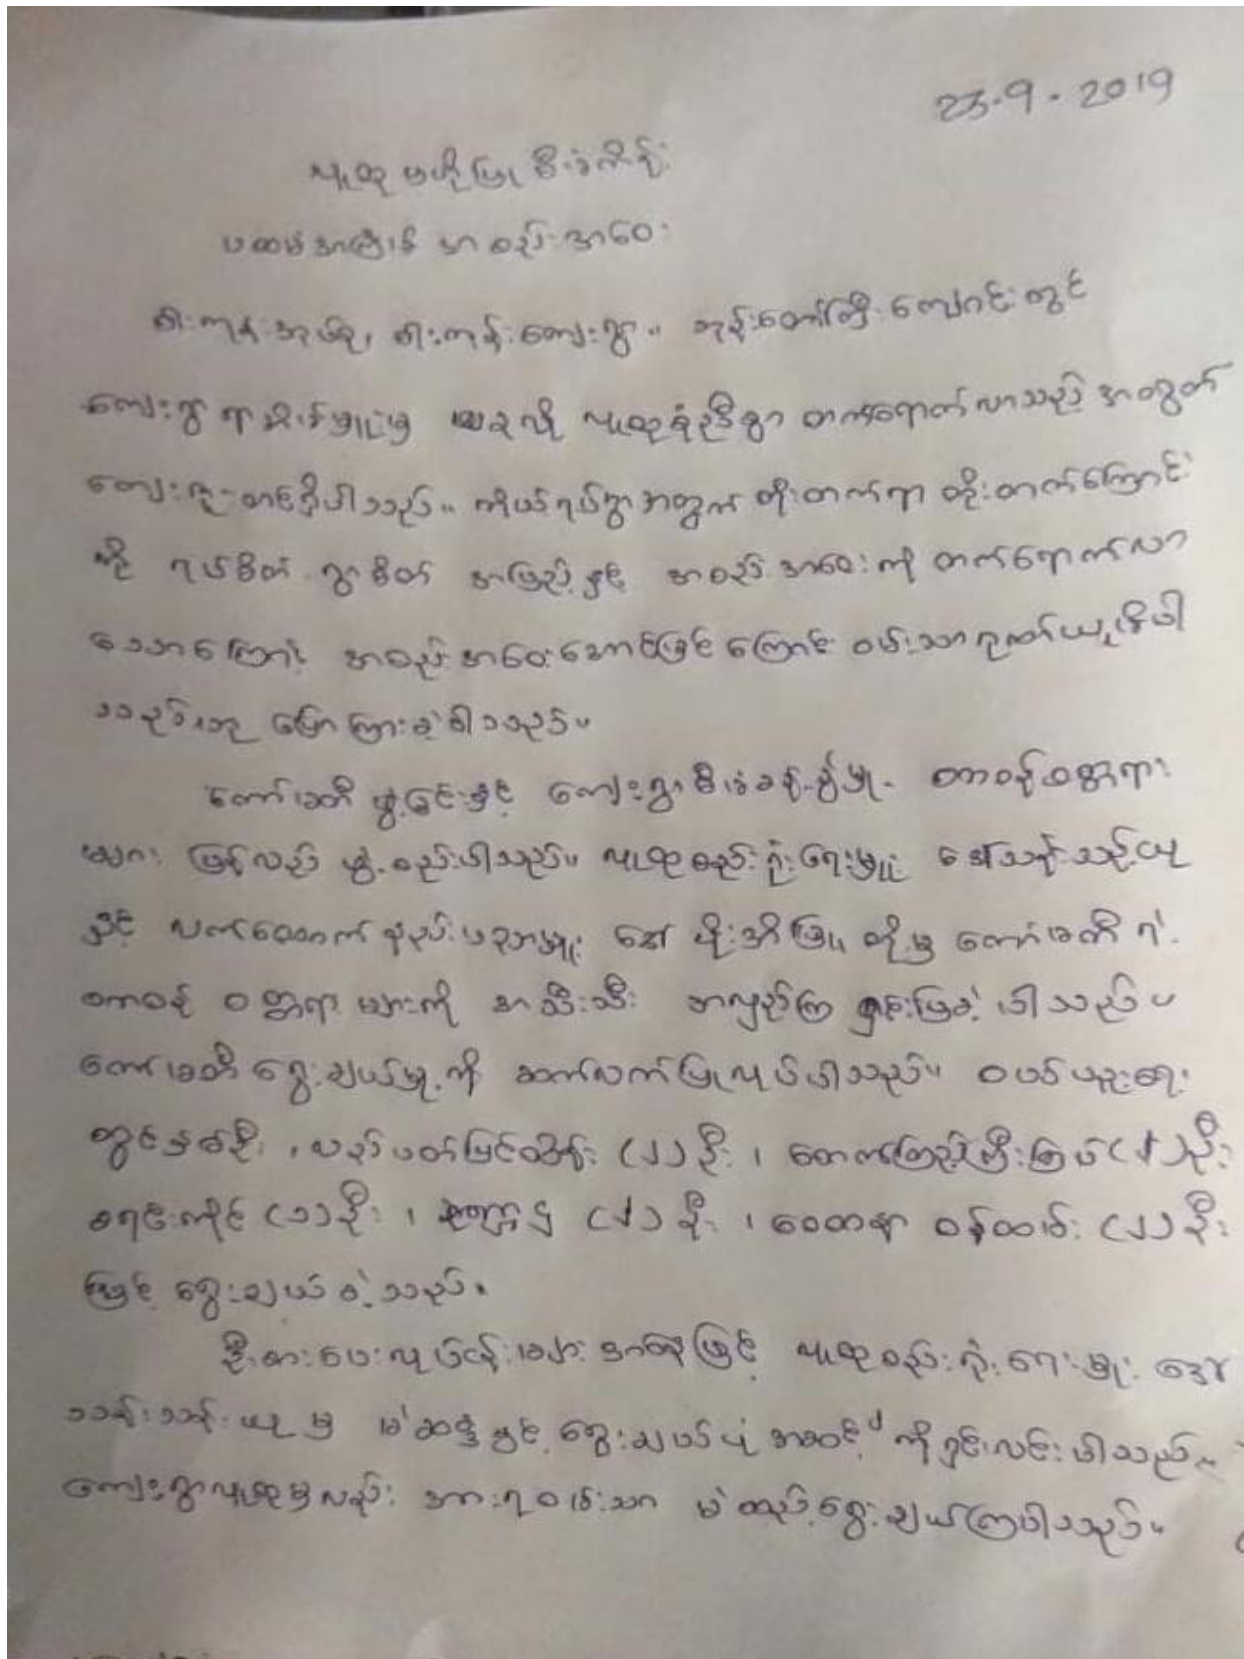 23-9-2019
လူထုဗဟိုပြု စီမံကိန်း
ပထမအကြိမ် အစည်းအဝေး
ဝါးကုန်းအုပ်စု၊ ဝါးကုန်းကျေးရွာ။ ဘုန်းတော်ကြီးကျောင်းတွင်
ကျေးရွာရာအိမ်မှူးမှ ယခုလို လူထုစုံညီစွာ တက်ရောက်လာသည့် အတွက်
ကျေးဇူးတင်ရှိပါသည်။ ကိုယ်ရပ်ရွာအတွက် တိုးတက်ရာ တိုးတက်ကြောင်း
ကို ရပ်စိတ် ရွာစိတ် အပြည့်နှင့် အစည်းအဝေးကို တက်ရောက်လာ
သောကြောင့် အစည်းအဝေးအောင်မြင်ကြောင်း ဝမ်းသာဂုဏ်ယူမိပါ
သည်ဟု ပြောကြားခဲ့ပါသည်။
ကော်မတီဖွဲ့ခြင်းနှင့် ကျေးရွာစီမံခန့်ခွဲမှု တာဝန်ဝတ္တရား
များ ပြန်လည် ဖွဲ့စည်းပါသည်။ လူထုစည်းရုံးရေးမှူး ဒေါ်သန်းသန်းယု
နှင့် လက်ထောက်နည်းပညာမှူး ဒေါ်မိုးအိဖြူ တို့မှ ကော်မတီရဲ့
တာဝန် ဝတ္တရားများကို အသီးသီး အလှည့်ကျ ရှင်းပြခဲ့ပါသည်။
ကော်မတီရွေးချယ်မှုကို ဆက်လက်ပြုလုပ်ပါသည်။ ဝယ်ယူရေး
တွင်နှစ်ဦး၊ လည်ပတ်ထိန်း (၂) ဦး၊ ငွေကြေးကြီးကြပ် (၂) ဦး
စာရင်းကိုင် (၁) ဦး၊ ဥက္ကဋ္ဌ (၂) ဦး၊ စေတနာ့ဝန်ထမ်း (၂) ဦး
ဖြင့် ရွေးချယ်ခဲ့သည်။
ဦးစားပေးလုပ်ငန်းများ အနေဖြင့် လူထုစည်းရုံးရေးမှူး ဒေါ်
သန်းသန်းယုမှ မဲဆန္ဒနှင့် ရွေးချယ်ပုံအဆင့် ကိုရှင်းလင်းပါသည်။
ကျေးရွာလူထုမှလည်း အားရဝမ်းသာ မဲထည့်ရွေးချယ်ကြပါသည်။